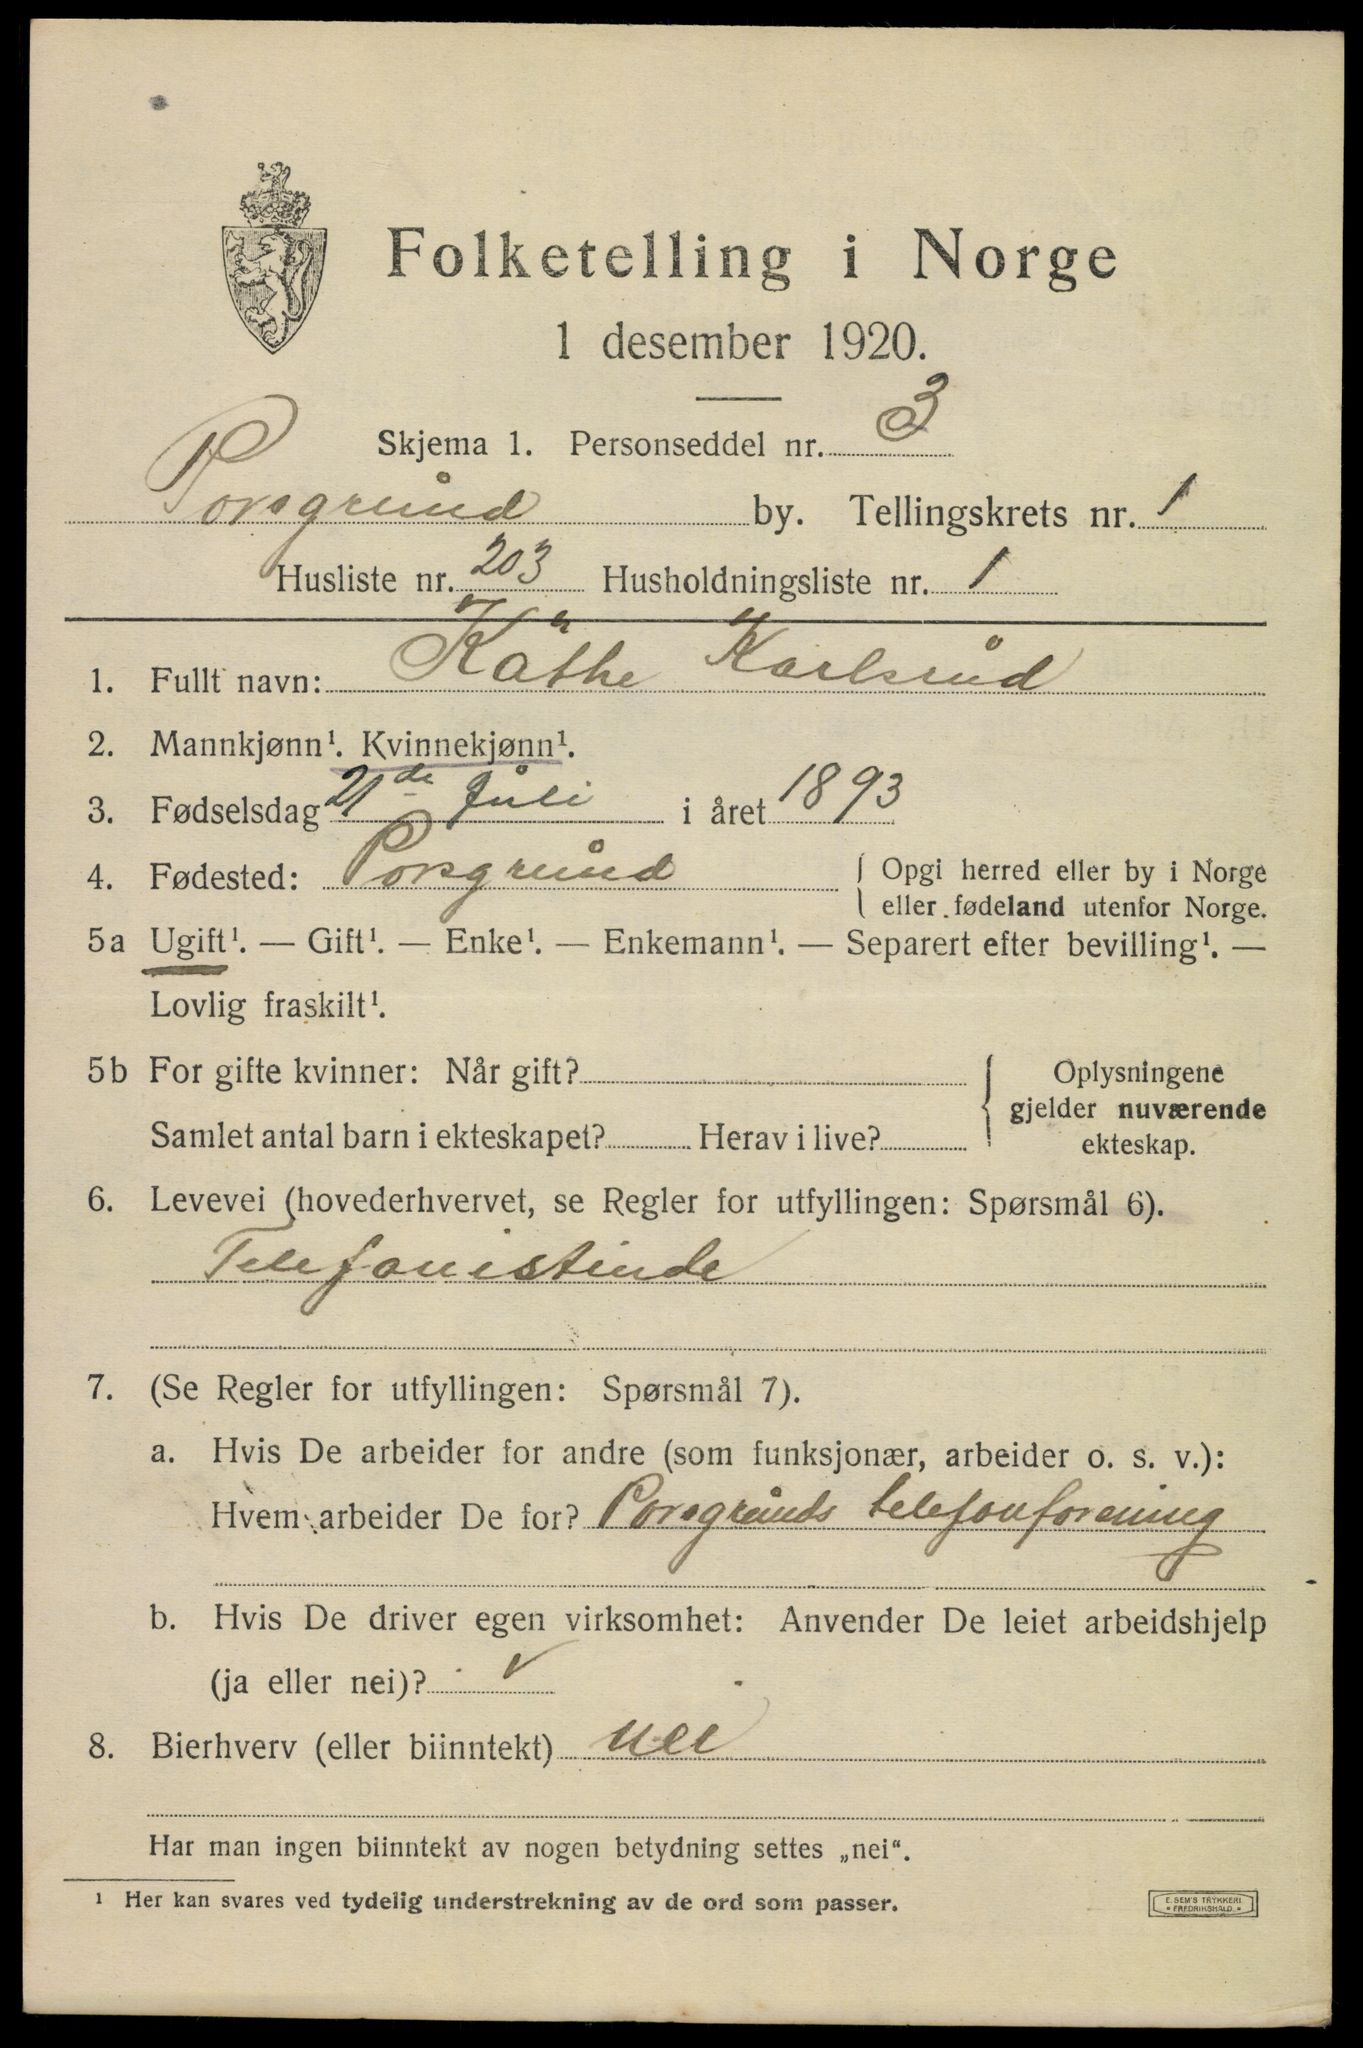 Folketelling i Norge
1 desember 1920.
Skjema 1. Personseddel nr. 3
Porsgrund by. Tellingskrets nr. 1
Husliste nr. 203 Husholdningsliste nr. 1
1. Fullt navn: Käthe Karlsrud
2. Mannkjønn¹. Kvinnekjønn¹.
3. Fødselsdag 21de Juli i året 1893
4. Fødested: Porsgrund { Opgi herred eller by i Norge
eller fødeland utenfor Norge.
5a Ugift¹. — Gift¹. — Enke¹. — Enkemann¹. — Separert efter bevilling¹. —
Lovlig fraskilt¹.
5b For gifte kvinner: Når gift? { Oplysningene
gjelder nuværende
Samlet antal barn i ekteskapet? Herav i live? ekteskap.
6. Levevei (hovederhvervet, se Regler for utfyllingen: Spørsmål 6).
Telefonistinde
7. (Se Regler for utfyllingen: Spørsmål 7).
a. Hvis De arbeider for andre (som funksjonær, arbeider o. s. v.):
Hvem arbeider De for? Porsgrunds telefonforening
b. Hvis De driver egen virksomhet: Anvender De leiet arbeidshjelp
(ja eller nei)? √
8. Bierhverv (eller biinntekt) nei
Har man ingen biinntekt av nogen betydning settes „nei“.
¹ Her kan svares ved tydelig understrekning av de ord som passer.
E. SEM'S TRYKKERI
FREDRIKSHALD.